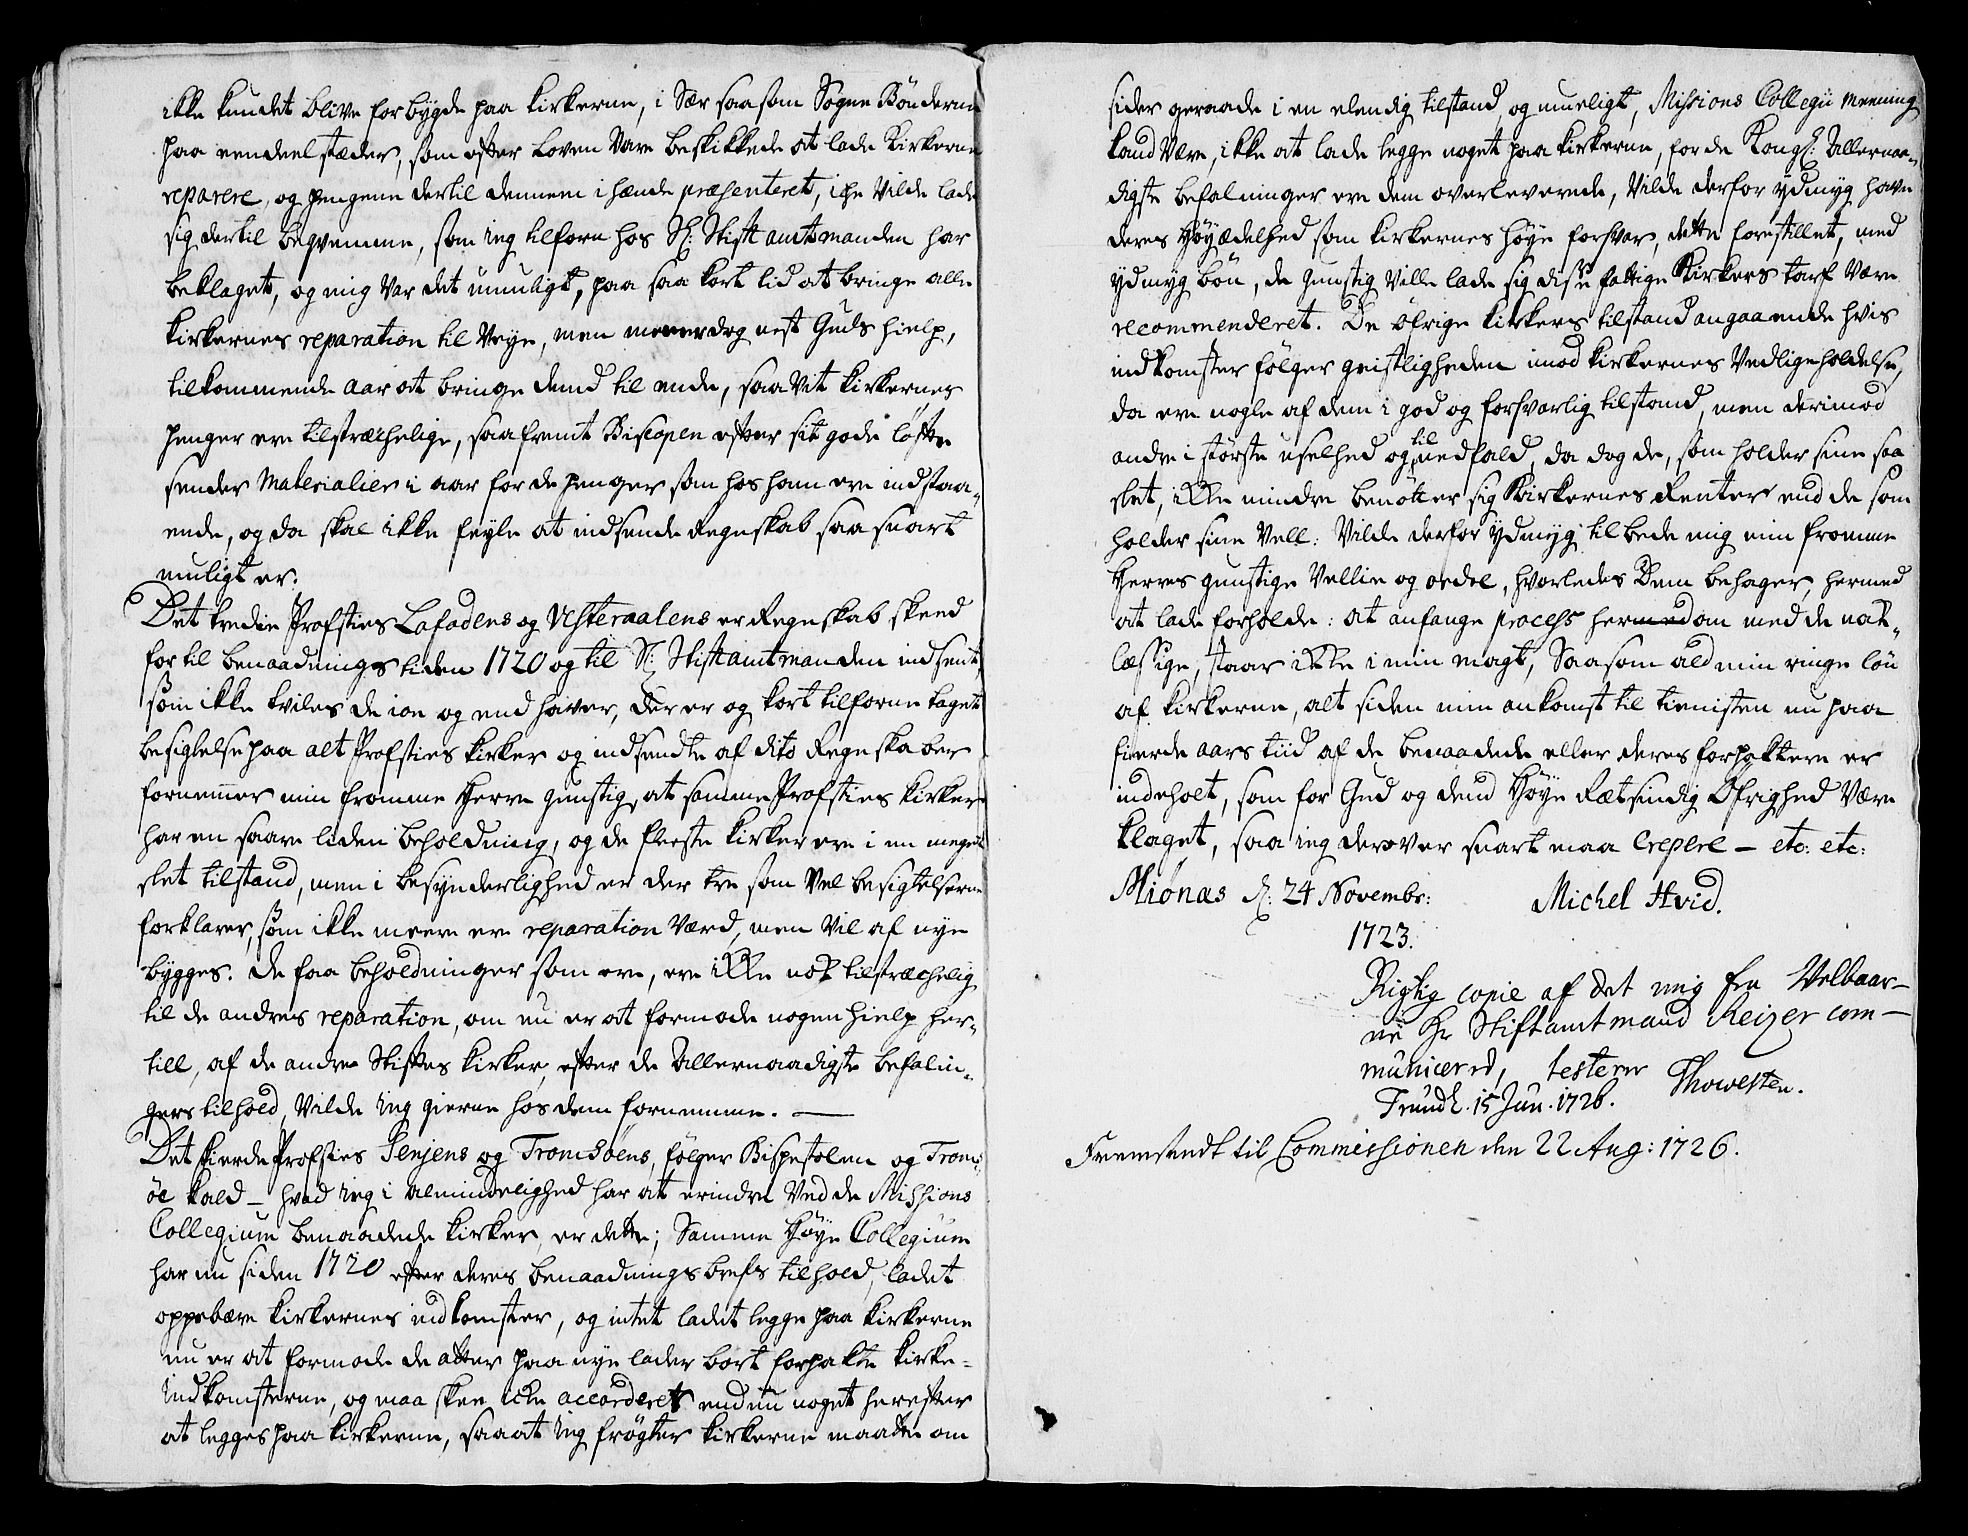 ikke kundet blive forbygde paa kirkerne, i Sær saasom Sogne Bønderne
paa eendeel stæder, som efter Loven Vare beskikkede at lade Kirkerne
reparere, og pengene dertil dennem i hænde præsenteret, iche Vilde lade
sig dertil beqvemme, som ieg tilforn hos Hr: Stiftamtmanden har
beklaget, og mig Var det umuligt, paa saa kort tid at bringe alle
kirkernes reparation til Veye, men meener dog nest Guds hielp,
tilkommende aar at bringe dend til ende, saa Vit kirkernes
penger ere tilstræchelige, saafremt Biscopen efter sit gode løfte
sender Materialier i aar for de penger som hos ham ere indstaa-
ende, og da skal ikke feyle at indsende Regnskab saa snart
muligt er.
Det tredie Profsties Lofodens og Westeraalens er Regnskab skeed
for til benaadnings tiden 1720 og til Hr: Stiftamtmanden indsent,
som ikke tviles de ioe og end haver, der er og kort tilforne taget
besigtelse paa alt Profsties kirker og indsendte af dito Regnskaber
fornemmer min fromme Herre gunstig, at samme Profsties kirker
har en saare liden beholdning, og de fleeste kirker ere i en meget
slet tilstand, men i besynderlighed er der tre som Vel besigtelserne
forklarer, som ikke meere ere reparation Værd, men Vil af nye
bygges. De faa beholdninger som ere, ere ikke nok tilstræchelig
til de andres reparation, om nu er at formode nogen hielp her-
till, af de andre Stiftes kirker, efter de Allernaadigste befalin-
gers tilhold, Vilde ieg gierne hos dem fornemme. —
Det fierde Profsties Senjens og Tromsøens, følger Bispestolen og Troms
øe kald — hvad ieg i almindelighed har at erindre Ved de Missions
Collegium benaadede kirker, er dette; Samme Høye Collegium
har nu siden 1720 efter deres benaadnings brefs tilhold, ladet
oppebære kirkernes indkomster, og intet ladet legge paa kirkerne
nu er at formode de atter paa nye lader bort forpakte kirke-
Indkomsterne, og maa skee iche accorderet endnu noget herefter
at legges paa kirkerne, saa at ieg frøgter kirkerne maatte om
sider geraade i en elendig tilstand, og mueligt, Missions Collegii Meening
kand Være, ikke at lade legge noget paa kirkerne, for de Kongl: Allernaa-
digste befalninger ere dem overleverede, Vilde derfor ydmyg have
deres Høyædelhed som kirkernes høye forsvar, dette forestillet, med
ydmyg bøn, de gunstig Ville lade sig disse fattige Kirkers tarf Være
recommenderet. De øfrige kirkers tilstand angaaende hvis
indkomster følger geistligheden imod kirkernes Vedligeholdelse,
da ere nogle af dem i god og forsvarlig tilstand, men derimod
andre i største uselhed og til nedfald, da dog de, som holder sine saa
slet, ikke mindre benötter sig Kirkernes Renter end de som
holder sine Vell: Vilde derfor ydmyg tilbede mig min fromme
Herres gunstige Vellie og ordre, hvorledes Dem behager, hermed
at lade forholde: at anfange process hermed om med de nok-
læssige, staar ikke i min magt, Saasom ald min ringe løn
af kirkerne, alt siden min ankomst til tienisten nu paa
fierde aars tiid af de benaadede eller deres forpaktere er
indeholt, som for Gud og dend Høye Rætsindig Øfrighed Være
klaget, saa ieg derover snart maa Crepere — etc: etc:
Miønæs d: 24 Novembr: Michel Hvid.
1723.
Rigtig copie af det mig fra Velbaar-
ne Hr Stiftamtmand Keizer com-
municered, testerer
Trundh. 15 Jun. 1726. Thowesten.
Fremsendt til Commissionen den 22 Aug: 1726.